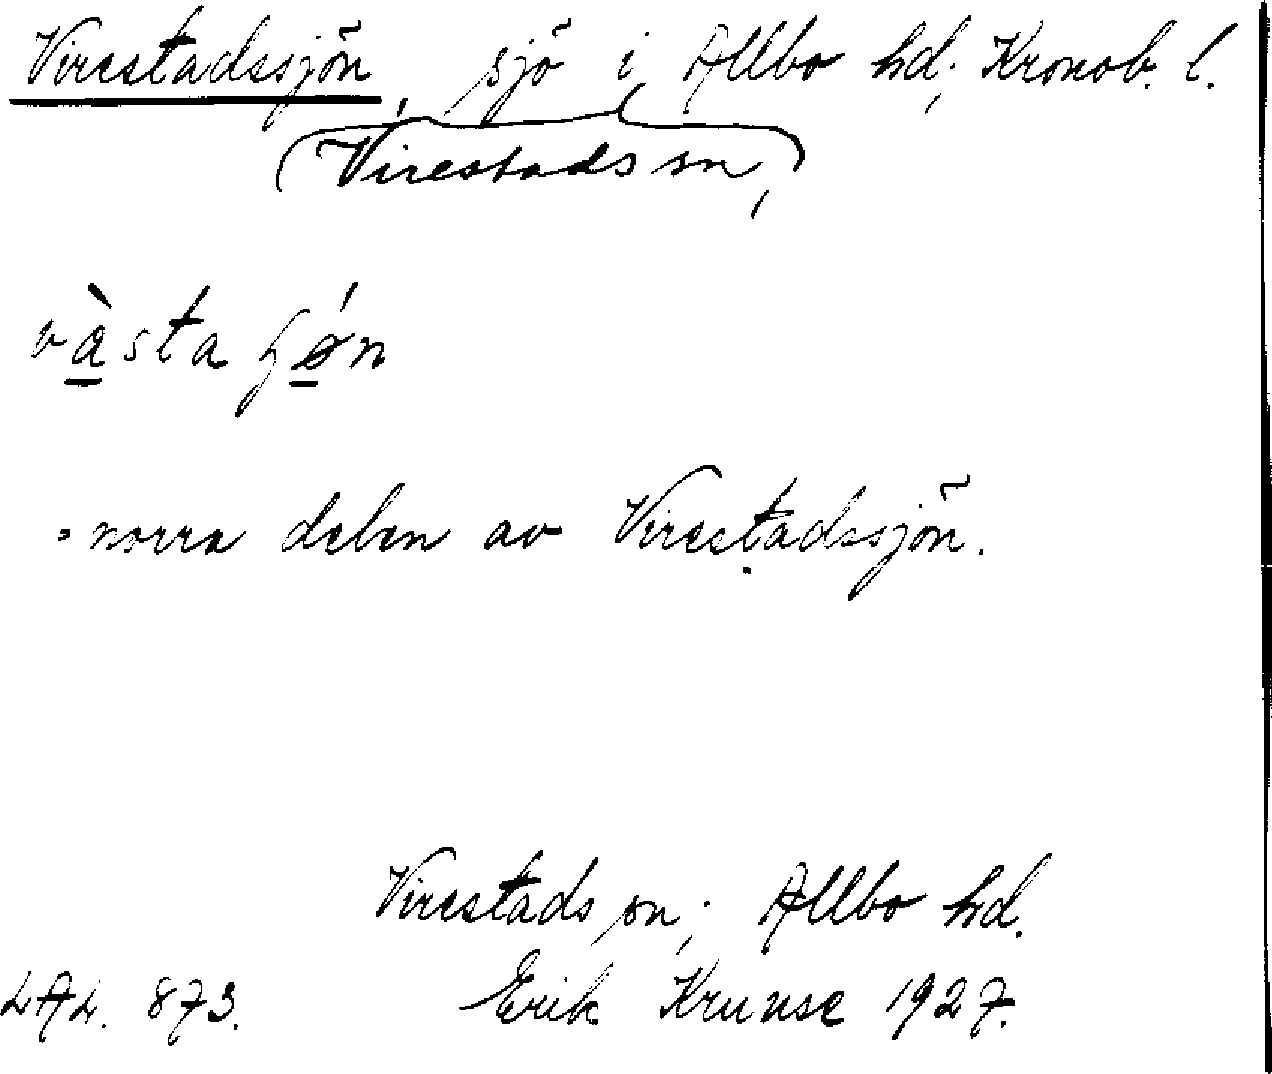 Virestadssjön, sjö i Allbo hd; Kronob. l.
(Virestads sn,)
và̱sta ɧǿ̱n
= norra delen av Virestadssjön.
Virestads sn; Allbo hd.
LAL. 873. Erik Kruuse 1927.